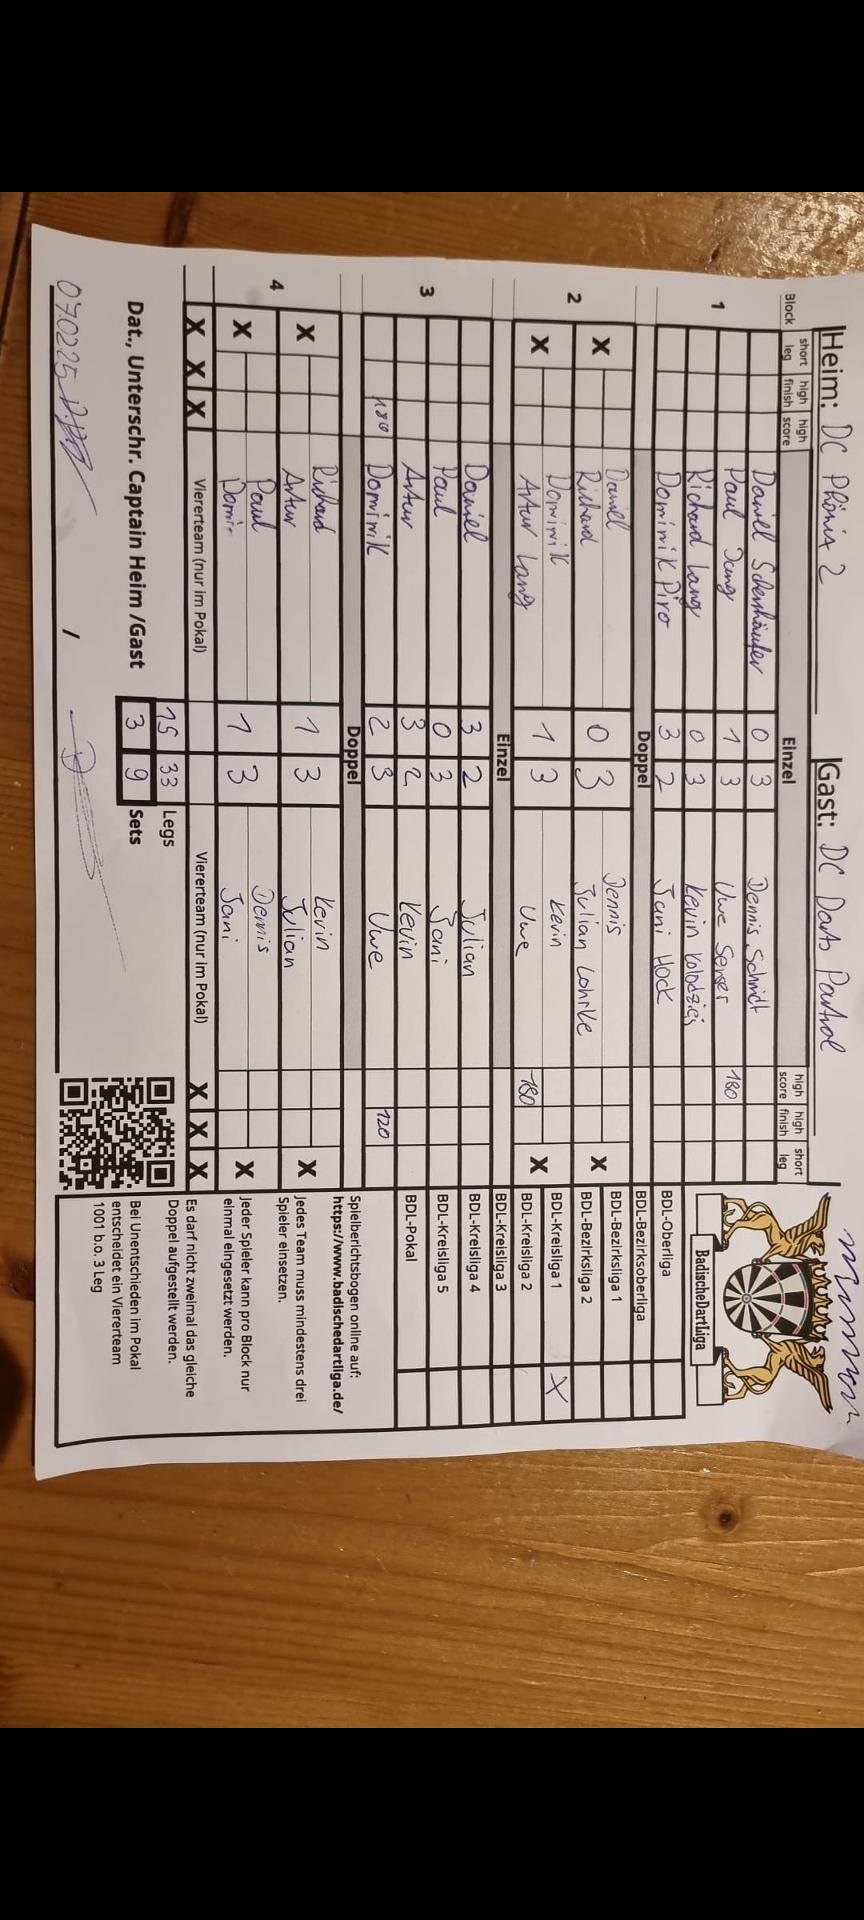 Heim: DC Phönix 2 Gast: DC Darts Partrol
Block short leg high finish high score Einzel high score high finish short leg
1 Daniel 0 3 Dennis Schmidt
Paul Jung 1 3 Uwe Senger 180
Richard Lang 0 3 Kevin Kolodziej
Dominik Piro 3 2 Jani Hock
Doppel
2 X Daniel Richard 0 3 Dennis Julian Lohrke X
X Dominik Artur Lang 1 3 Kevin Uwe 180 X
Einzel
3 Daniel 3 2 Julian
Paul 0 3 Jani
Artur 3 2 Kevin
180 Dominik 2 3 Uwe 120
Doppel
4 X Richard Artur 1 3 Kevin Julian X
X Paul Domi 1 3 Dennis Jani X
X X X Viererteam (nur im Pokal) Viererteam (nur im Pokal) X X X
15 33 Legs
3 9 Sets
Dat., Unterschr. Captain Heim /Gast
07.02.25 /
BadischeDartLiga
BDL-Oberliga
BDL-Bezirksoberliga
BDL-Bezirksliga 1
BDL-Bezirksliga 2
BDL-Kreisliga 1 X
BDL-Kreisliga 2
BDL-Kreisliga 3
BDL-Kreisliga 4
BDL-Kreisliga 5
BDL-Pokal
Spielberichtsbogen online auf:
https://www.badischedartliga.de/
Jedes Team muss mindestens drei
Spieler einsetzen.
Jeder Spieler kann pro Block nur
einmal eingesetzt werden.
Es darf nicht zweimal das gleiche
Doppel aufgestellt werden.
Bei Unentschieden im Pokal
entscheidet ein Viererteam
1001 b.o. 3 Leg